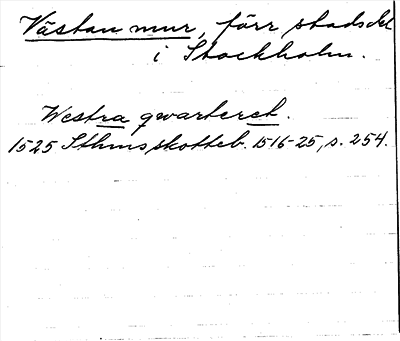 Västan mur, förr stadsdel
i Stockholm.
Westra qwarteret.
1525 Sthms skotteb. 1516-25, s. 254.